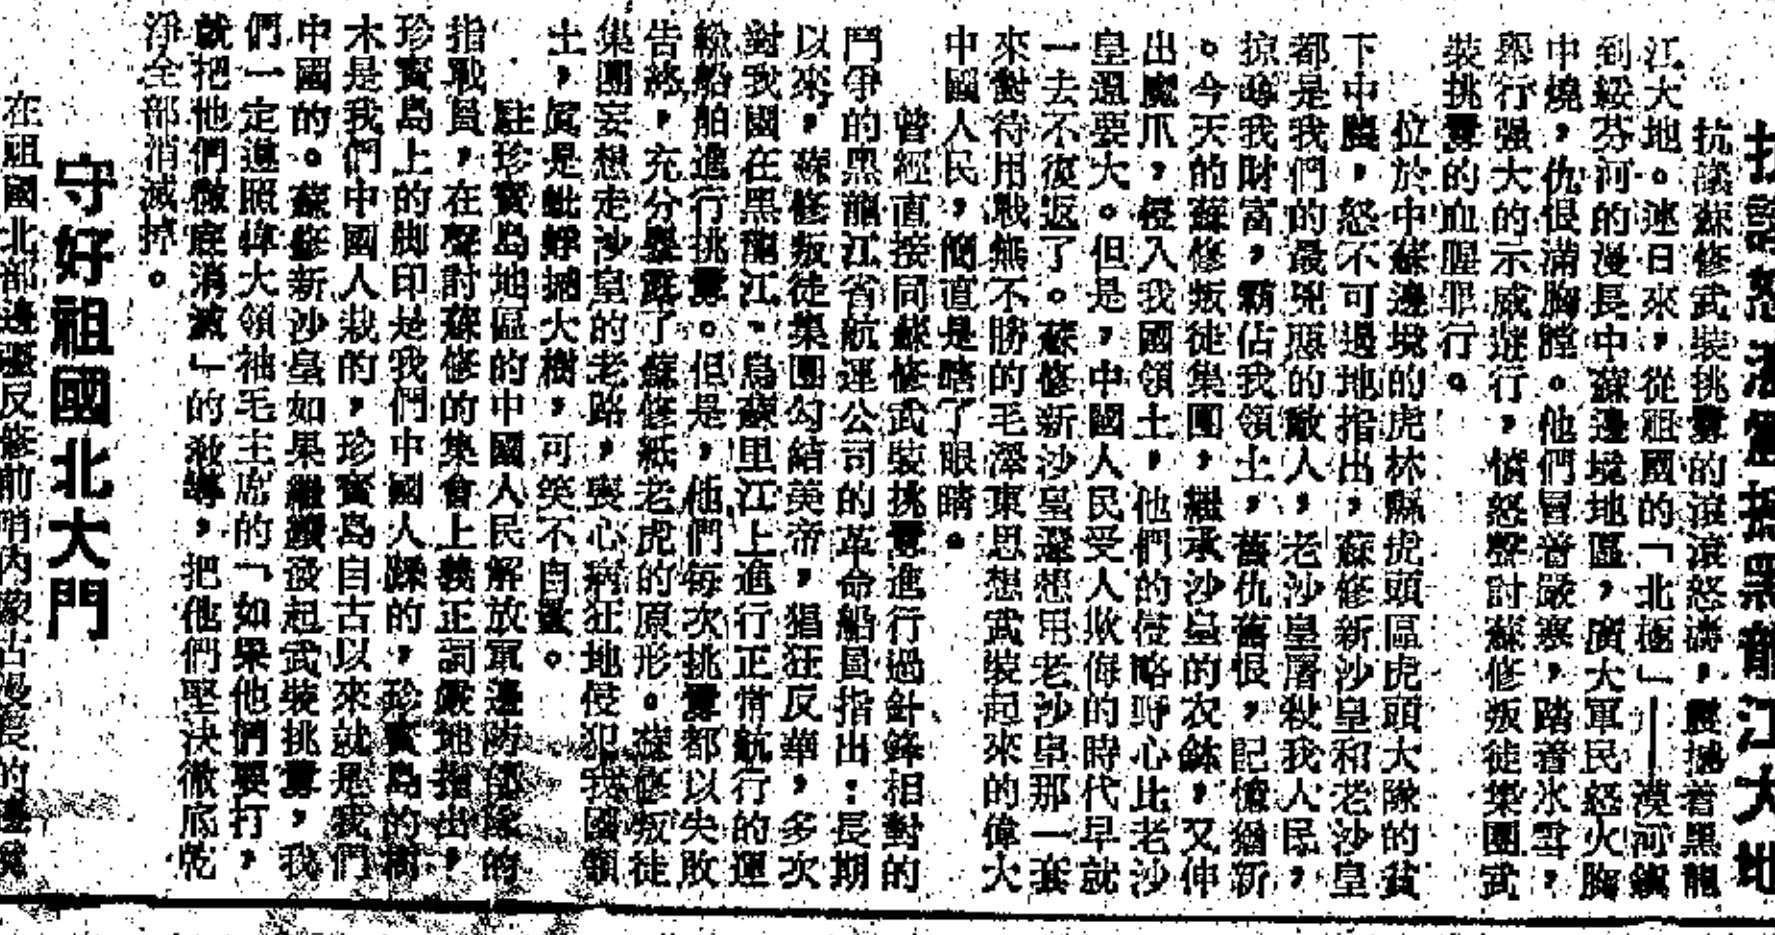 抗議怒濤震撼黑龍江大地
抗議蘇修武裝挑釁的滾滾怒濤，震撼着黑龍
江大地。連日來，從祖國的「北極」——漠河鎮
到綏芬河的漫長中蘇邊境地區，廣大軍民怒火胸
中燒，仇恨滿胸膛。他們冒着嚴寒，踏着氷雪，
舉行强大的示威遊行，憤怒聲討蘇修叛徒集團武
裝挑釁的血腥罪行。
位於中蘇邊境的虎林縣虎頭區虎頭大隊的貧
下中農，怒不可遏地指出，蘇修新沙皇和老沙皇
都是我們的最兇惡的敵人，老沙皇屠殺我人民，
掠奪我財富，霸佔我領土，舊仇舊恨，記憶猶新
。今天的蘇修叛徒集團，繼承沙皇的衣鉢，又伸
出魔爪，侵入我國領土，他們的侵略野心比老沙
皇還要大。但是，中國人民受人欺侮的時代早就
一去不復返了。蘇修新沙皇還想用老沙皇那一套
來對待用戰無不勝的毛澤東思想武裝起來的偉大
中國人民，簡直是瞎了眼睛。
曾經直接同蘇修武裝挑釁進行過針鋒相對的
鬥爭的黑龍江省航運公司的革命船員指出：長期
以來，蘇修叛徒集團勾結美帝，猖狂反華，多次
對我國在黑龍江、烏蘇里江上進行正常航行的運
輸船舶進行挑釁。但是，他們每次挑釁都以失敗
告終，充分暴露了蘇修紙老虎的原形。蘇修叛徒
集團妄想走沙皇的老路，喪心病狂地侵犯我國領
土，眞是蚍蜉撼大樹，可笑不自量。
駐珍寶島地區的中國人民解放軍邊防部隊的
指戰員，在聲討蘇修的集會上義正詞嚴地指出，
珍寶島上的脚印是我們中國人踩的，珍寶島的樹
木是我們中國人栽的，珍寶島自古以來就是我們
中國的。蘇修新沙皇如果繼續發起武裝挑釁，我
們一定遵照偉大領袖毛主席的「如果他們要打，
就把他們徹底消滅」的教導，把他們堅決徹底乾
淨全部消滅掉。
守好祖國北大門
在祖國北部邊疆反修前哨內蒙古漫長的邊